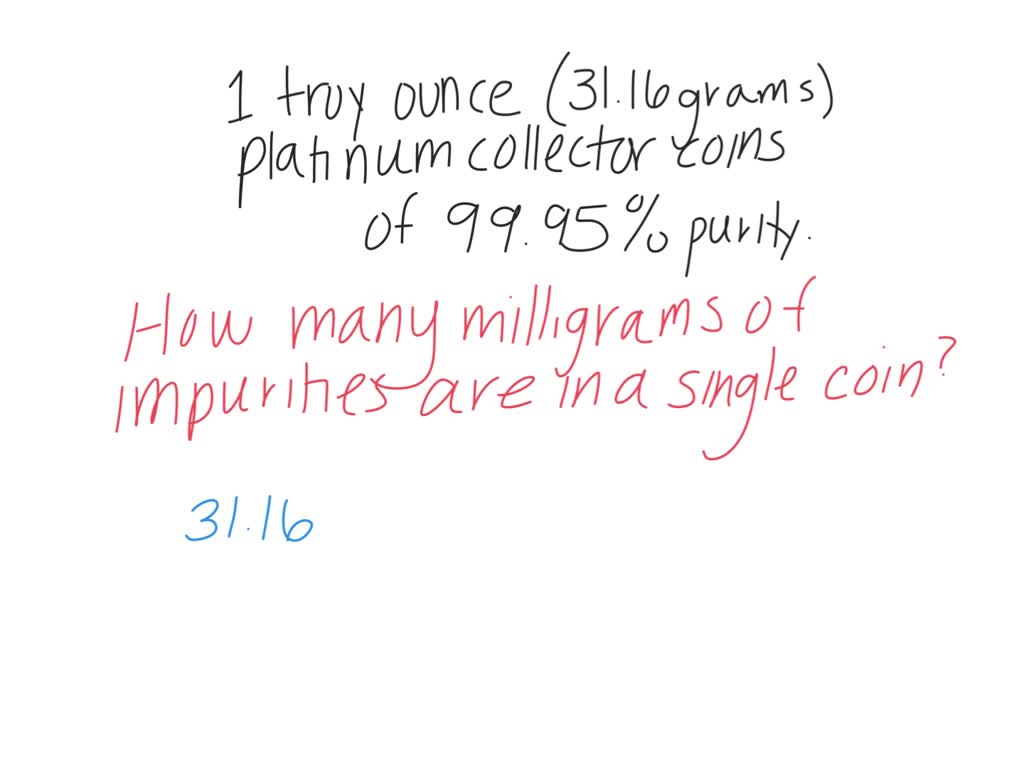 1 troy ounce (31.16grams)
platinum collector coins
of 99.95% purity.
How many milligrams of
impurities are in a single coin?
31.16